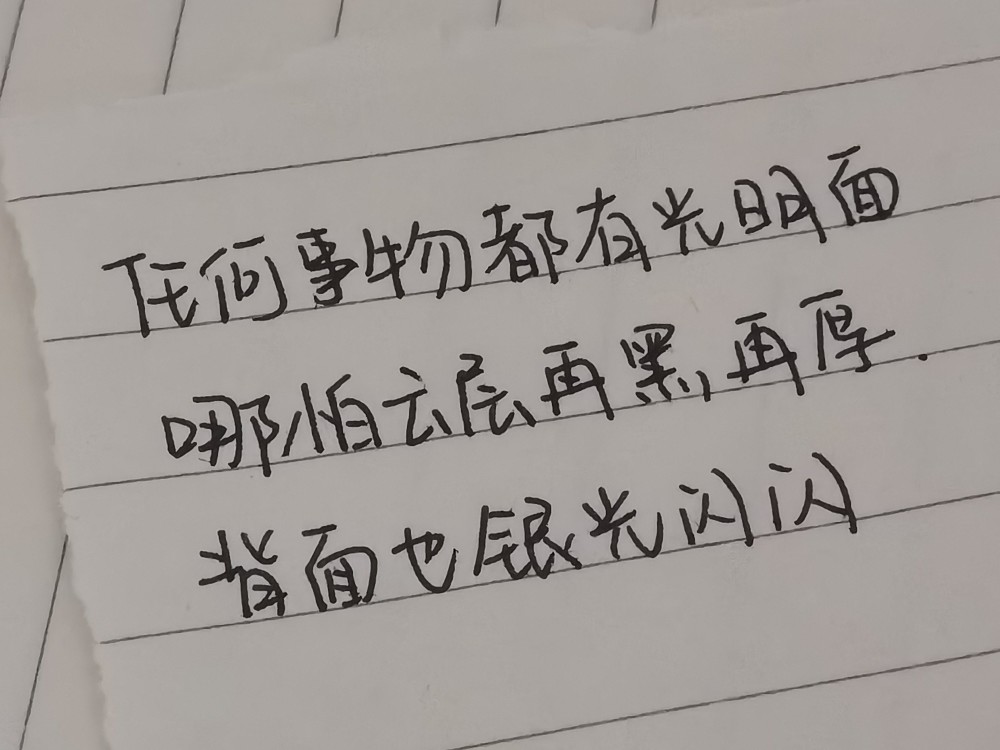 任何事物都有光明面
哪怕云层再黑再厚.
背面也银光闪闪